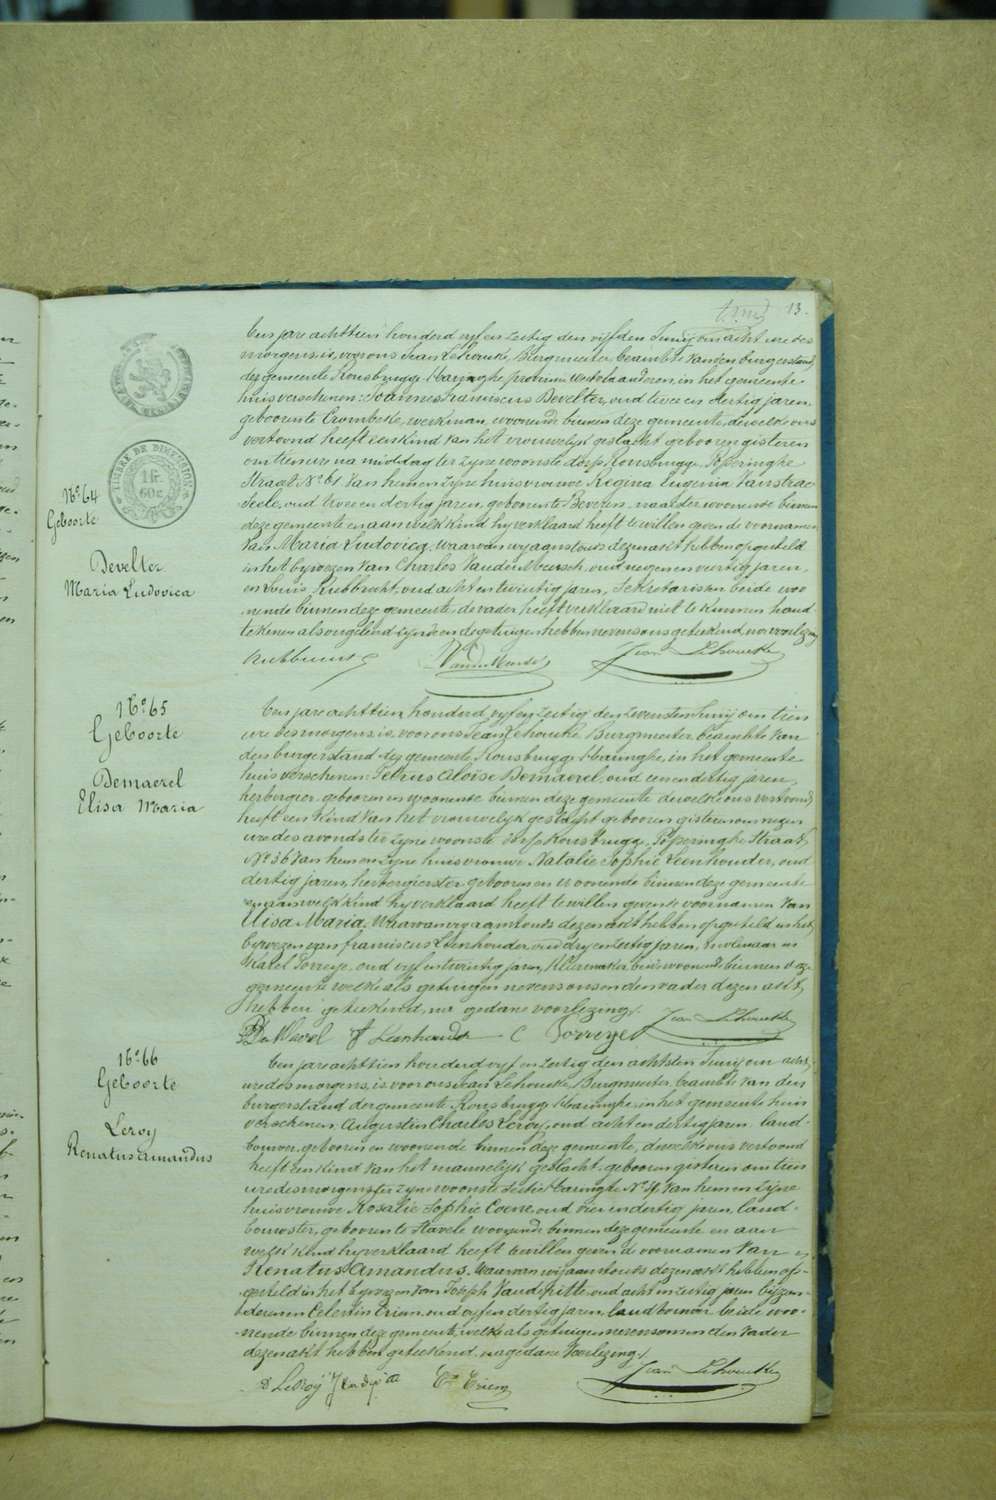 13.
TIMBRE DE DIMENSION
1 fr.
60 c.
N° 64
Geboorte
Develter
Maria Ludovica
Een jare achttien honderd vyf en zestig den vyfden Junij om acht ure des
morgens, is voor ons Jean Lehoucke, Burgmeester, beambte van den burgerstand,
der gemeente Rousbrugge Haringhe provincie westvlaanderen, in het gemeente-
huis verschenen: Joannes Franciscus Develter, oud twee en dertig jaren,
geboren te Crombeke, werkman, woonende binnen deze gemeente, dewelke ons
vertoond heeft een kind van het vrouwelyk geslacht geboren gisteren
om ure na middag ter zyne woonste dorp Rousbrugge, Poperinghe
Straat N° 61 van hem en zyne huisvrouwe Regina Eugenia Vanstrae-
oud twee en dertig jaren, geboren te Beveren, woonende binnen
deze gemeente en aan welk kind hy verklaard heeft te willen geven de voornamen
van Maria Ludovica, waarvan wy aanstonds dezen akt hebben opgesteld
in het bywezen van Charles Vandenmeersch, oud negen en veertig jaren,
en Louis Rubbrecht, oud acht en twintig jaren, Sekretarissen beide woo-
nende binnen deze gemeente, de vader heeft verklaard niet te kunnen hand-
teekenen als ongeleerd zynde en de getuigen hebben nevens ons geteekend, na voorlezing
Jean Lehoucke
N° 65
Geboorte
Demaerel
Elisa Maria
Een jare achttien honderd vyf en zestig den zevensten Junij om tien
ure des morgens, is voor ons Jean Lehoucke, Burgmeester beambte van
den burgerstand der gemeente Rousbrugge Haringhe, in het gemeente
huis verschenen: Petrus Aloise Demaerel, oud een en dertig jaren,
herbergier, geboren en woonende binnen deze gemeente dewelke ons vertoond
heeft een kind van het vrouwelyk geslacht geboren gisteren om negen
ure des avonds ter zyne woonste dorp Rousbrugge, Poperinghe Straat,
N° 36 van hem en zyne huisvrouwe Natalie Sophie Leenhouder, oud
dertig jaren, herbergierster geboren en woonende binnen deze gemeente
en aan welk kind hy verklaard heeft te willen geven de voornamen van
Elisa Maria, waarvan wy aanstonds dezen akt hebben opgesteld in het
bywezen van franciscus Leenhouder, oud dry en zestig jaren, en
Karel Torreye, oud vyf en twintig jaren, kleermaker, beide woonende binnen deze
gemeente welke als getuigen nevens ons en den vader dezen akt
hebben geteekend, na gedane voorlezing./
F Leenhouder C Torreye Jean Lehoucke
N° 66
Geboorte
Leroy
Renatus Amandus
Een jare achttien honderd vyf en zestig den achtsten Junij om acht
ure des morgens, is voor ons Jean Lehoucke, Burgmeester, beambte van den
burgerstand der gemeente Rousbrugge Haringhe, in het gemeente huis
verschenen Augustin Charles Leroy, oud acht en dertig jaren, land-
bouwer, geboren en woonende binnen deze gemeente, dewelke ons vertoond
heeft een kind van het mannelyk geslacht, geboren gisteren om tien
ure des morgens ter zyne woonste sectie Haringhe N° van hem en zyne
huisvrouwe Rosalie Sophie Coene, oud vier en dertig jaren, land-
bouwster, geboren te Stavele woonende binnen deze gemeente en aan
welk kind hy verklaard heeft te willen geven de voornamen van
Renatus Amandus. Waarvan wij aanstonds dezen akt hebben op-
gesteld in het bywezen van Joseph Vandepitte, oud acht en zestig jaren byzon-
deren en Celestin Criem, oud vyf en dertig jaren, landbouwer beide woo-
nende binnen deze gemeente, welke als getuigen nevens ons en den vader
dezen akt hebben geteekend, na gedane Voorlezing./
LeRoy Criem Jean Lehoucke